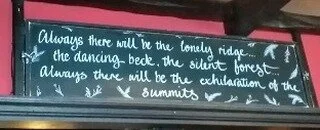 Always there will be the lonely ridge...
the dancing beck, the silent forest...
always there will be the exhilaration of the
summits